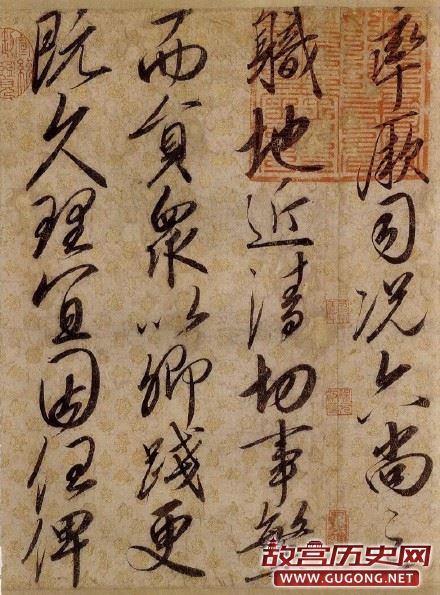 率厥司况六尚之
軄地近清切事繁
而員衆以卿踐更
既久理宜因任俾
故宫历史网
WWW.GUGONG.NET